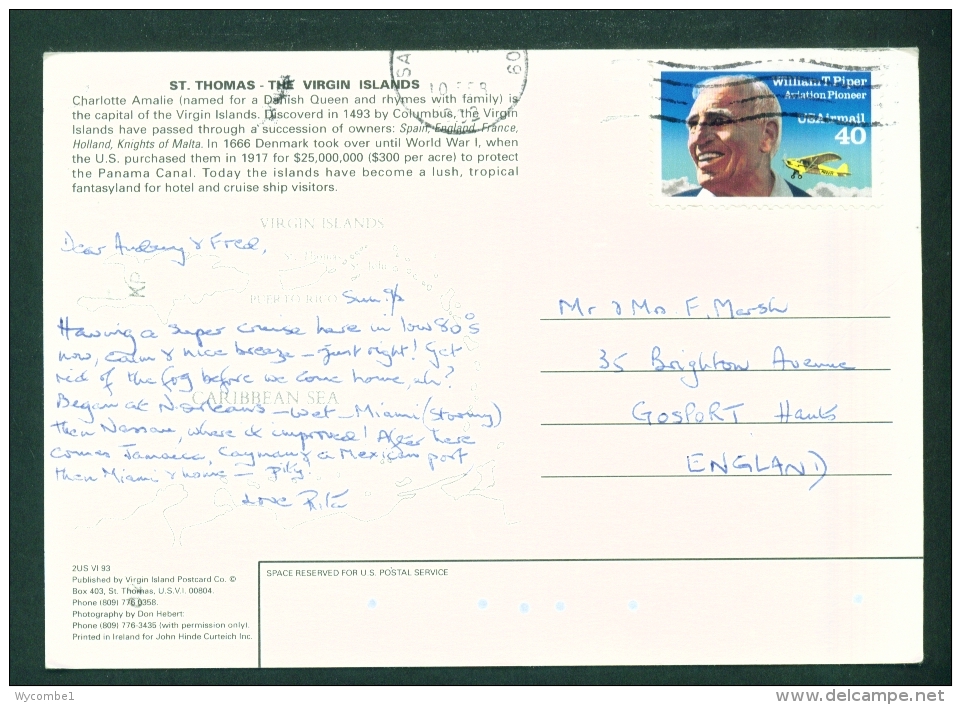 ST. THOMAS - THE VIRGIN ISLANDS
Charlotte Amalie (named for a Danish Queen and rhymes with family) is
the capital of the Virgin Islands. Discoverd in 1493 by Columbus, the Virgin
Islands have passed through a succession of owners: Spain, England, France,
Holland, Knights of Malta. In 1666 Denmark took over until World War I, when
the U.S. purchased them in 1917 for $25,000,000 ($300 per acre) to protect
the Panama Canal. Today the islands have become a lush, tropical
fantasyland for hotel and cruise ship visitors.
USA
10 FEB
60
William T Piper
Aviation Pioneer
USAirmail
40
VIRGIN ISLANDS
Dear Audrey & Fred,
St. Thomas
PUERTO RICO
Sun. 9/2
Having a super cruise here in low 80°s
now, calm & nice breeze - just right! Get
rid of the fog before we come home, eh?
CARIBBEAN SEA
Began at N. Orleans - wet - Miami (stormy)
then Nassau, where it improved! After here
comes Jamaica, Cayman & a Mexican port
then Miami & home - pity!
Love Rita
Mr & Mrs F. Marsh
35 Brighton Avenue
GOSPORT Hants
ENGLAND
2US VI 93
Published by Virgin Island Postcard Co. ©
Box 403, St. Thomas, U.S.V.I. 00804.
Phone (809) 776 0358.
Photography by Don Hebert:
Phone (809) 776-3435 (with permission only).
Printed in Ireland for John Hinde Curteich Inc.
SPACE RESERVED FOR U.S. POSTAL SERVICE
Wycombe1
www.delcampe.net